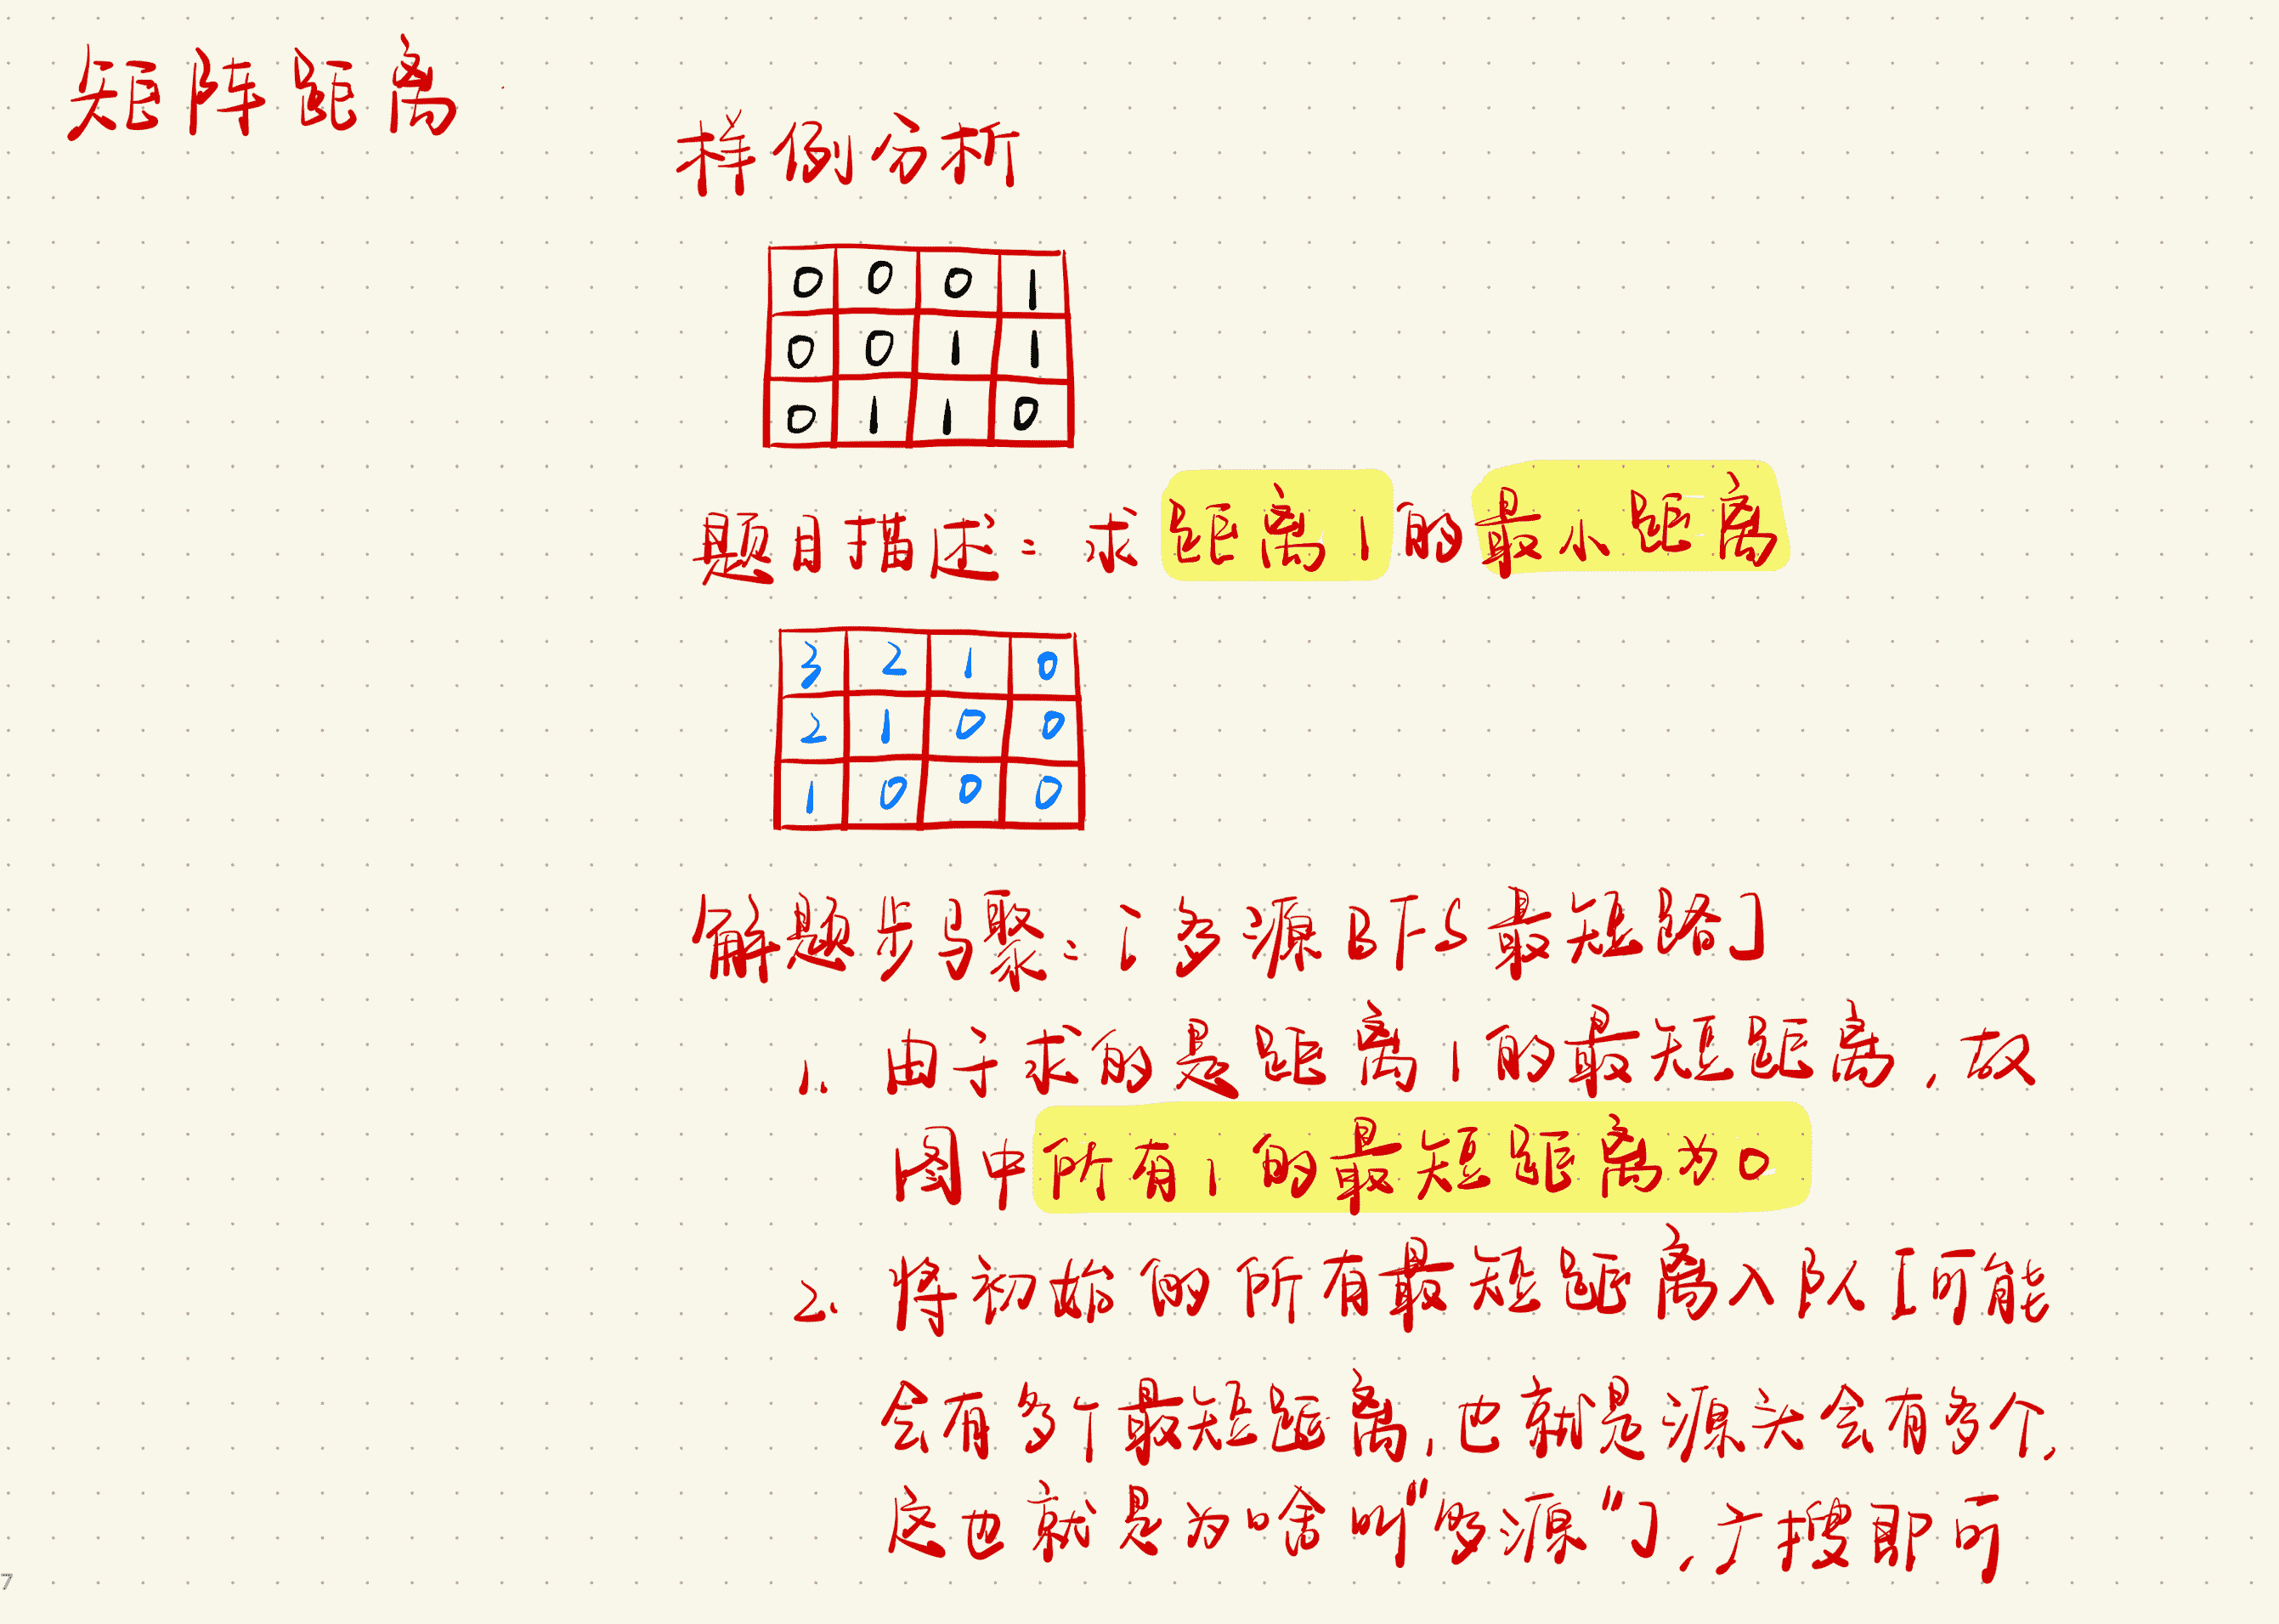 矩阵距离
样例分析
0 0 0 1
0 0 1 1
0 1 1 0
题目描述：求距离1的最小距离
3 2 1 0
2 1 0 0
1 0 0 0
解题步骤：[多源BFS最短路]
1. 由于求的是距离1的最短距离，故
图中所有1的最短距离为0
2. 将初始的所有最短距离入队[可能
会有多个最短距离，也就是源头会有多个，
这也就是为啥叫"多源"]，广搜即可
7